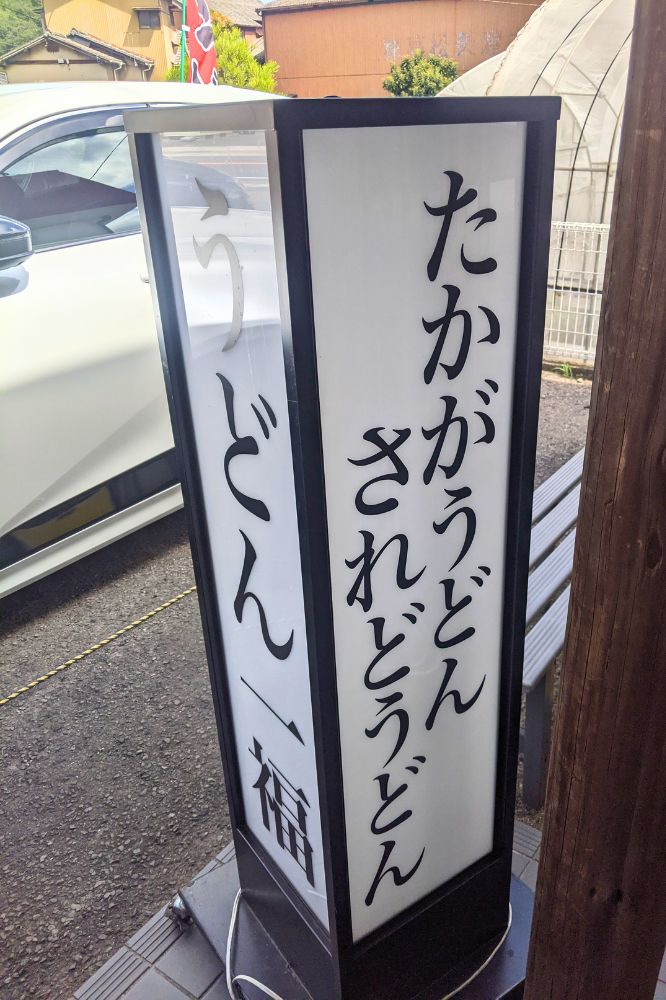 たかがうどん
されどうどん
うどん一福